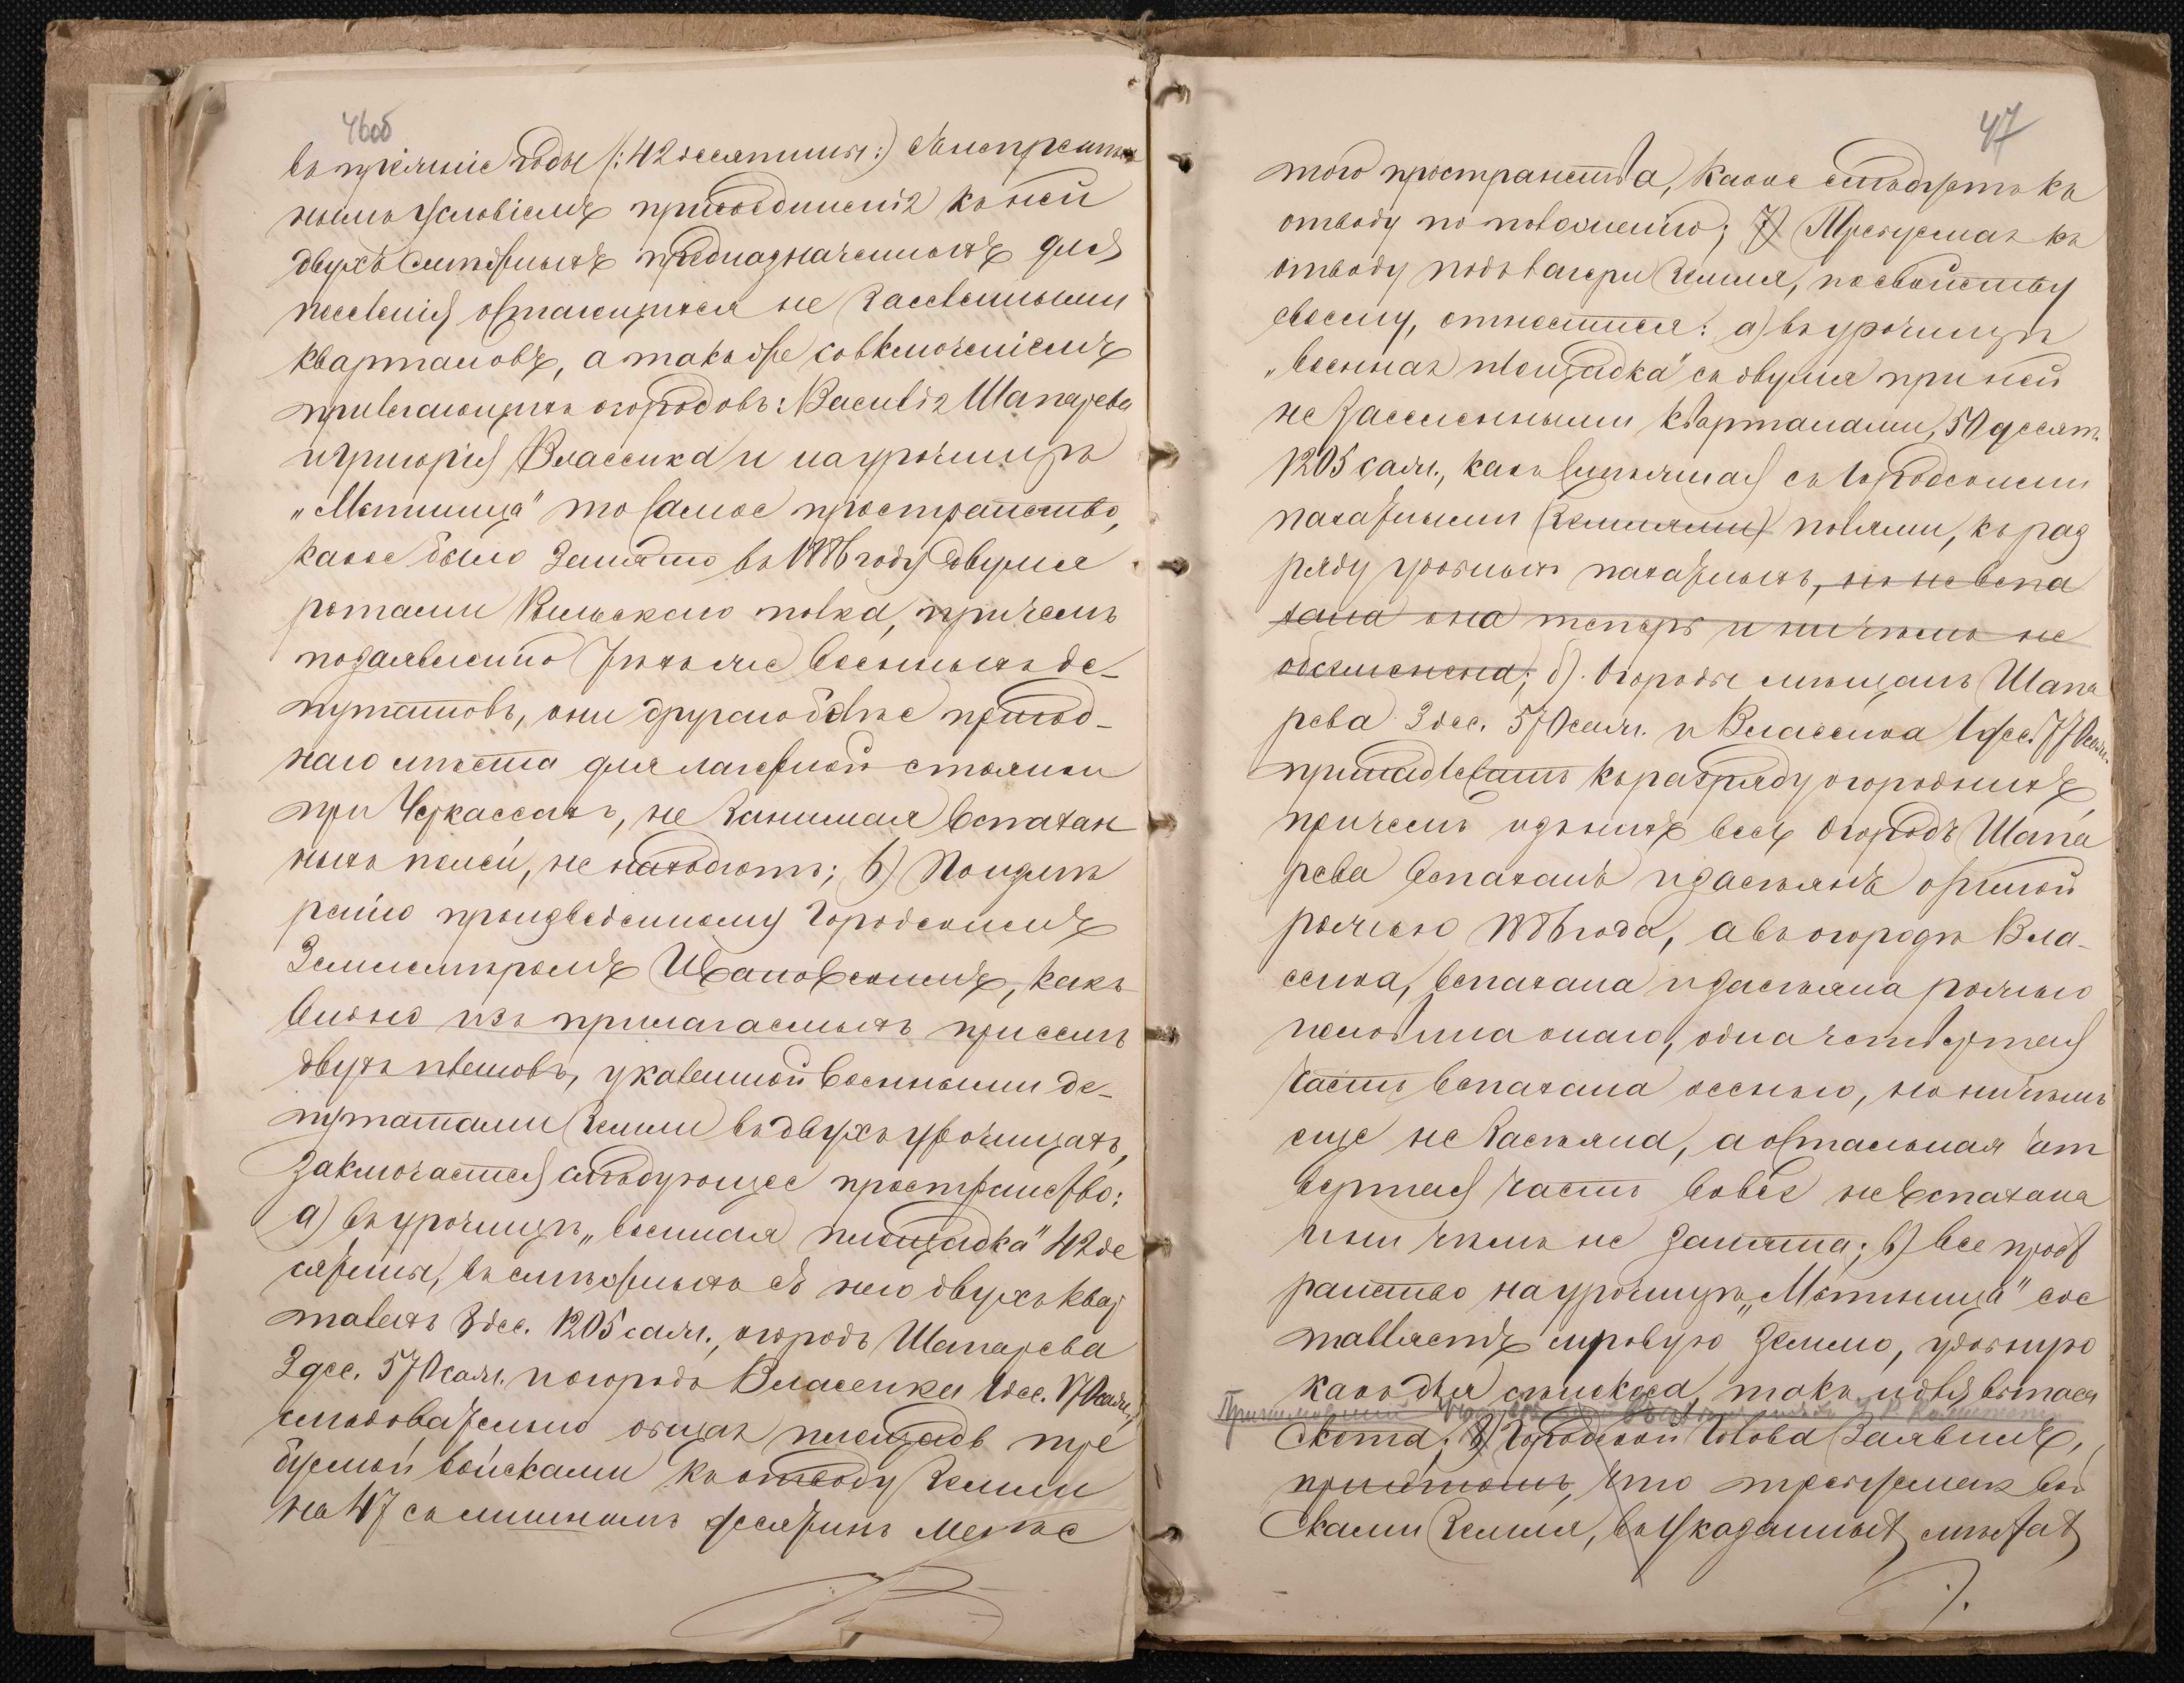 46об
въ прежніе годы (:42 десятины:) съ непремѣн
нымъ условіемъ присоединенія къ ней
двухъ смежныхъ предназначенныхъ для
поселенія остающихся не заселенными
кварталовъ, а также со включеніемъ
прилегающихъ огородовъ: Василія Шапарева
и Григорія Власенка и на урочищѣ
„Мытница" то самое пространство,
какое было занято въ 1886 году двумя
ротами полка, причемъ
по заявленію тѣхъ же военныхъ де-
путатовъ, они другого болѣе пригод-
наго мѣста для лагерной стоянки
при Черкассахъ, не занимая вспахан
ныхъ полей, не находятъ; 6) По измѣ
ренію произведенному Городскимъ
Землемѣромъ, какъ
видно изъ прилагаемыхъ при семъ
двухъ плановъ, указанной военными де-
путатами земли въ двухъ урочищахъ,
заключается слѣдующее пространство:
а) въ урочищѣ „военная площадка" 42 де
сятины, въ смежныхъ съ нею двухъ квар
талахъ 8 дес. 1205 саж., огородъ Шапарева
3 дес. 570 саж. и огородъ Власенка 1 дес. 770 саж.,
слѣдовательно общая площадь тре
буемой войсками къ отводу земли
на 47 съ лишнимъ десятинъ менѣе
47
того пространства, какое слѣдуетъ къ
отводу по положенію; 7) Требуемая къ
отводу подъ лагери земля, по свойству
своему, относится: а) въ урочищѣ
„военная площадка" съ двумя при ней
не заселенными кварталами, 50 десят.
1205 саж., какъ смежная съ городскими
пахатными землями полями, къ раз
ряду удобныхъ пахатныхъ, но не вспа
хана она теперь и ничѣмъ не
обсѣменена; б). Огороды мѣщанъ Шапа
рева 3 дес. 570 саж. и Власенка 1 дес. 770 саж.
принадлежатъ къ разряду огородныхъ,
причемъ изъ нихъ весь огородъ Шапа
рева вспаханъ и засѣянъ озимой
рожью 1886 года, а въ огородѣ Вла-
сенка, вспахана и засѣяна рожью
половина онаго, одна четвертая
часть вспахана осенью, но ничѣмъ
еще не засѣяна, а остальная чет
вертая часть вовсе не вспахана
и ни чѣмъ не занята; в) все прост
ранство на урочищѣ „Мытница" сос
тавляетъ луговую землю, удобную
какъ для сѣнокоса, такъ и для выпаса
скота; 8) Городской Голова заявилъ,
при этомъ, что требуемая вой
сками земля, въ указанныхъ мѣстахъ